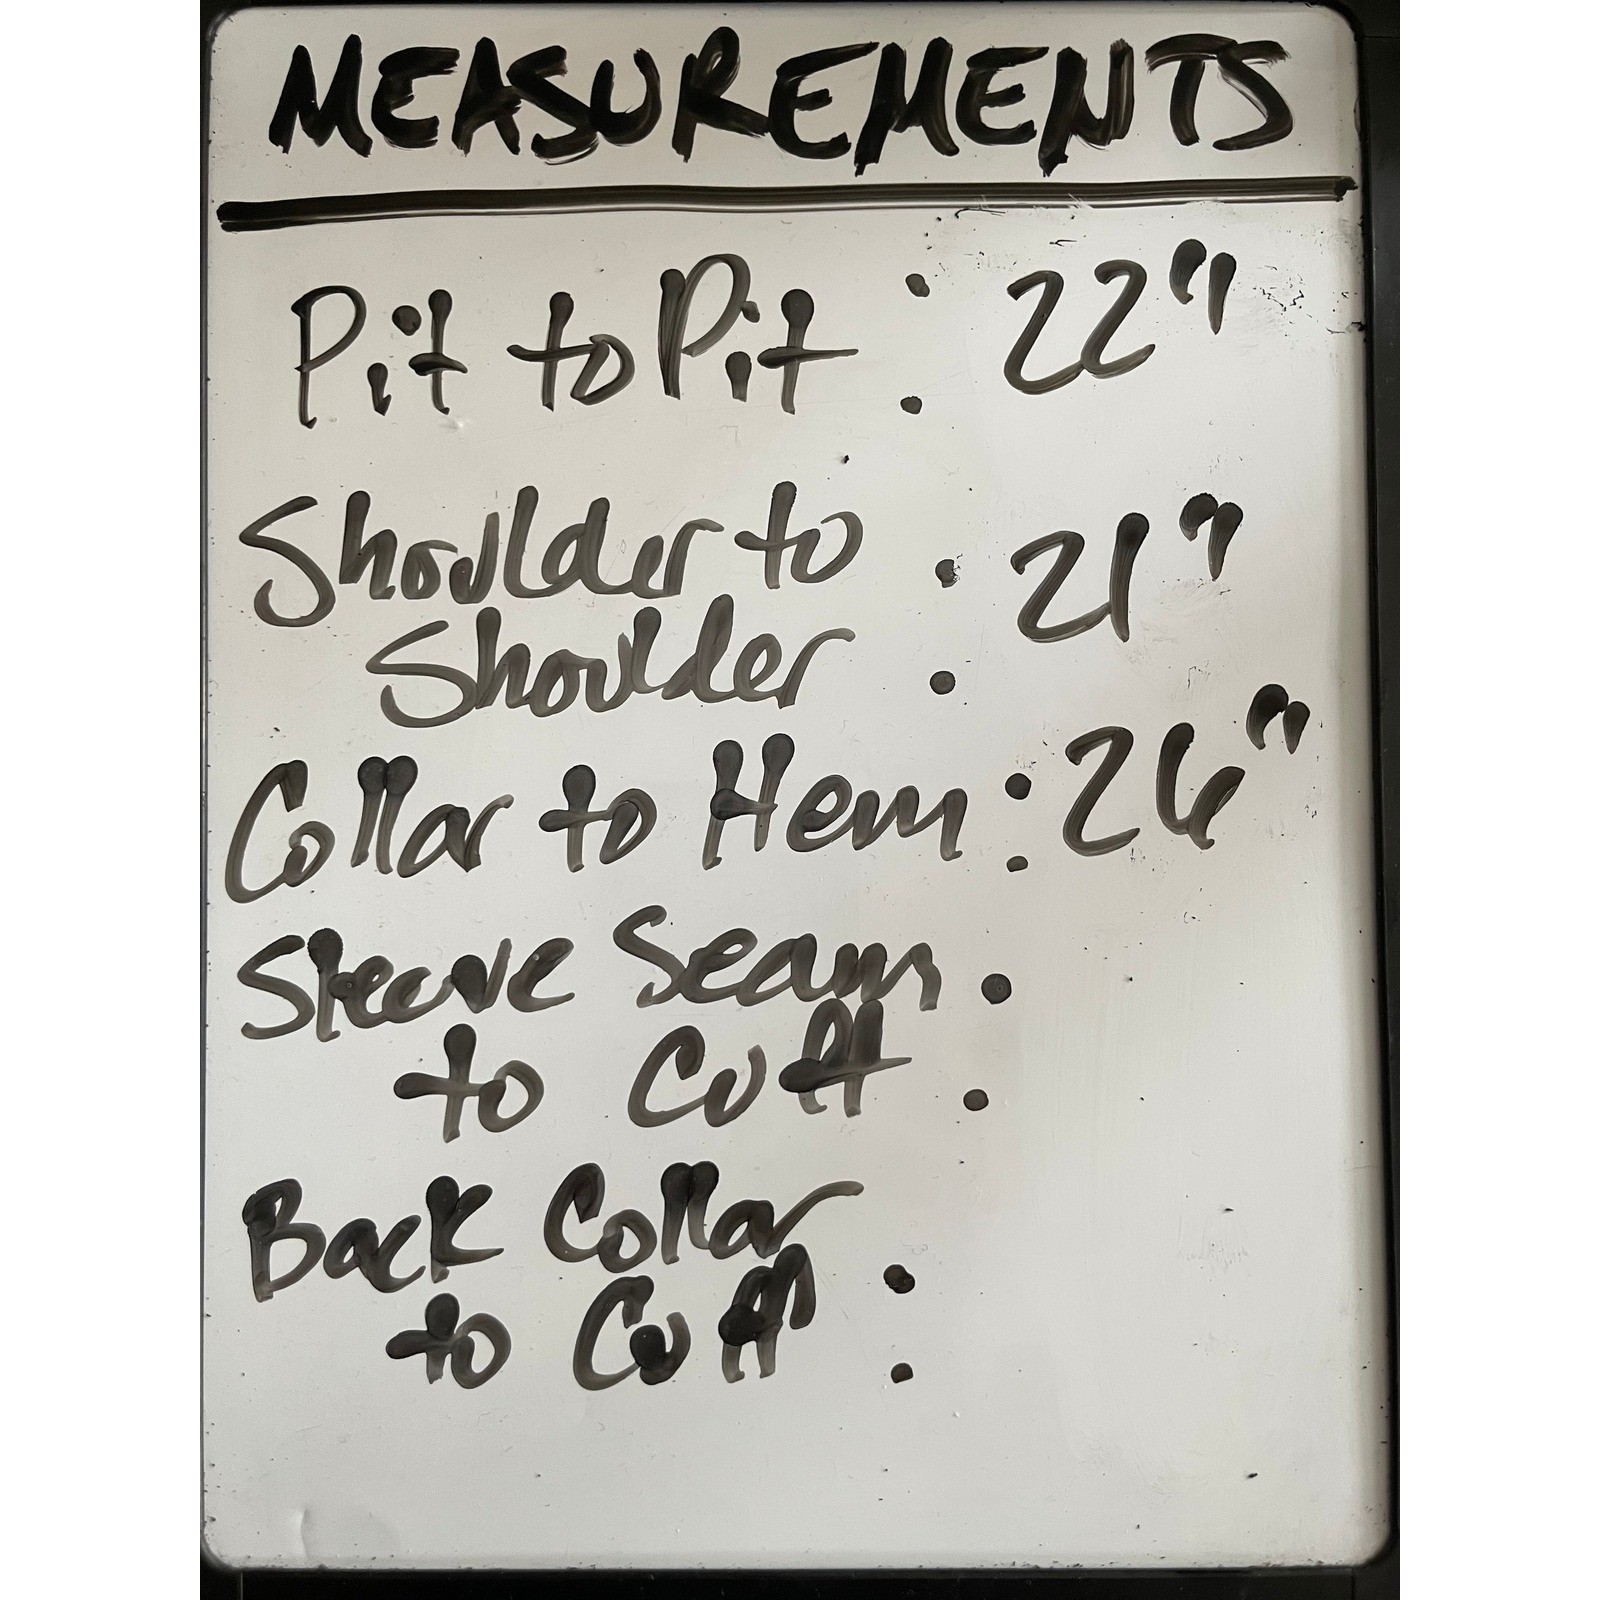 MEASUREMENTS
Pit to Pit : 22"
Shoulder to
Shoulder : 21"
Collar to Hem : 26"
Sleeve Seam
to Cuff :
Back Collar
to Cuff :